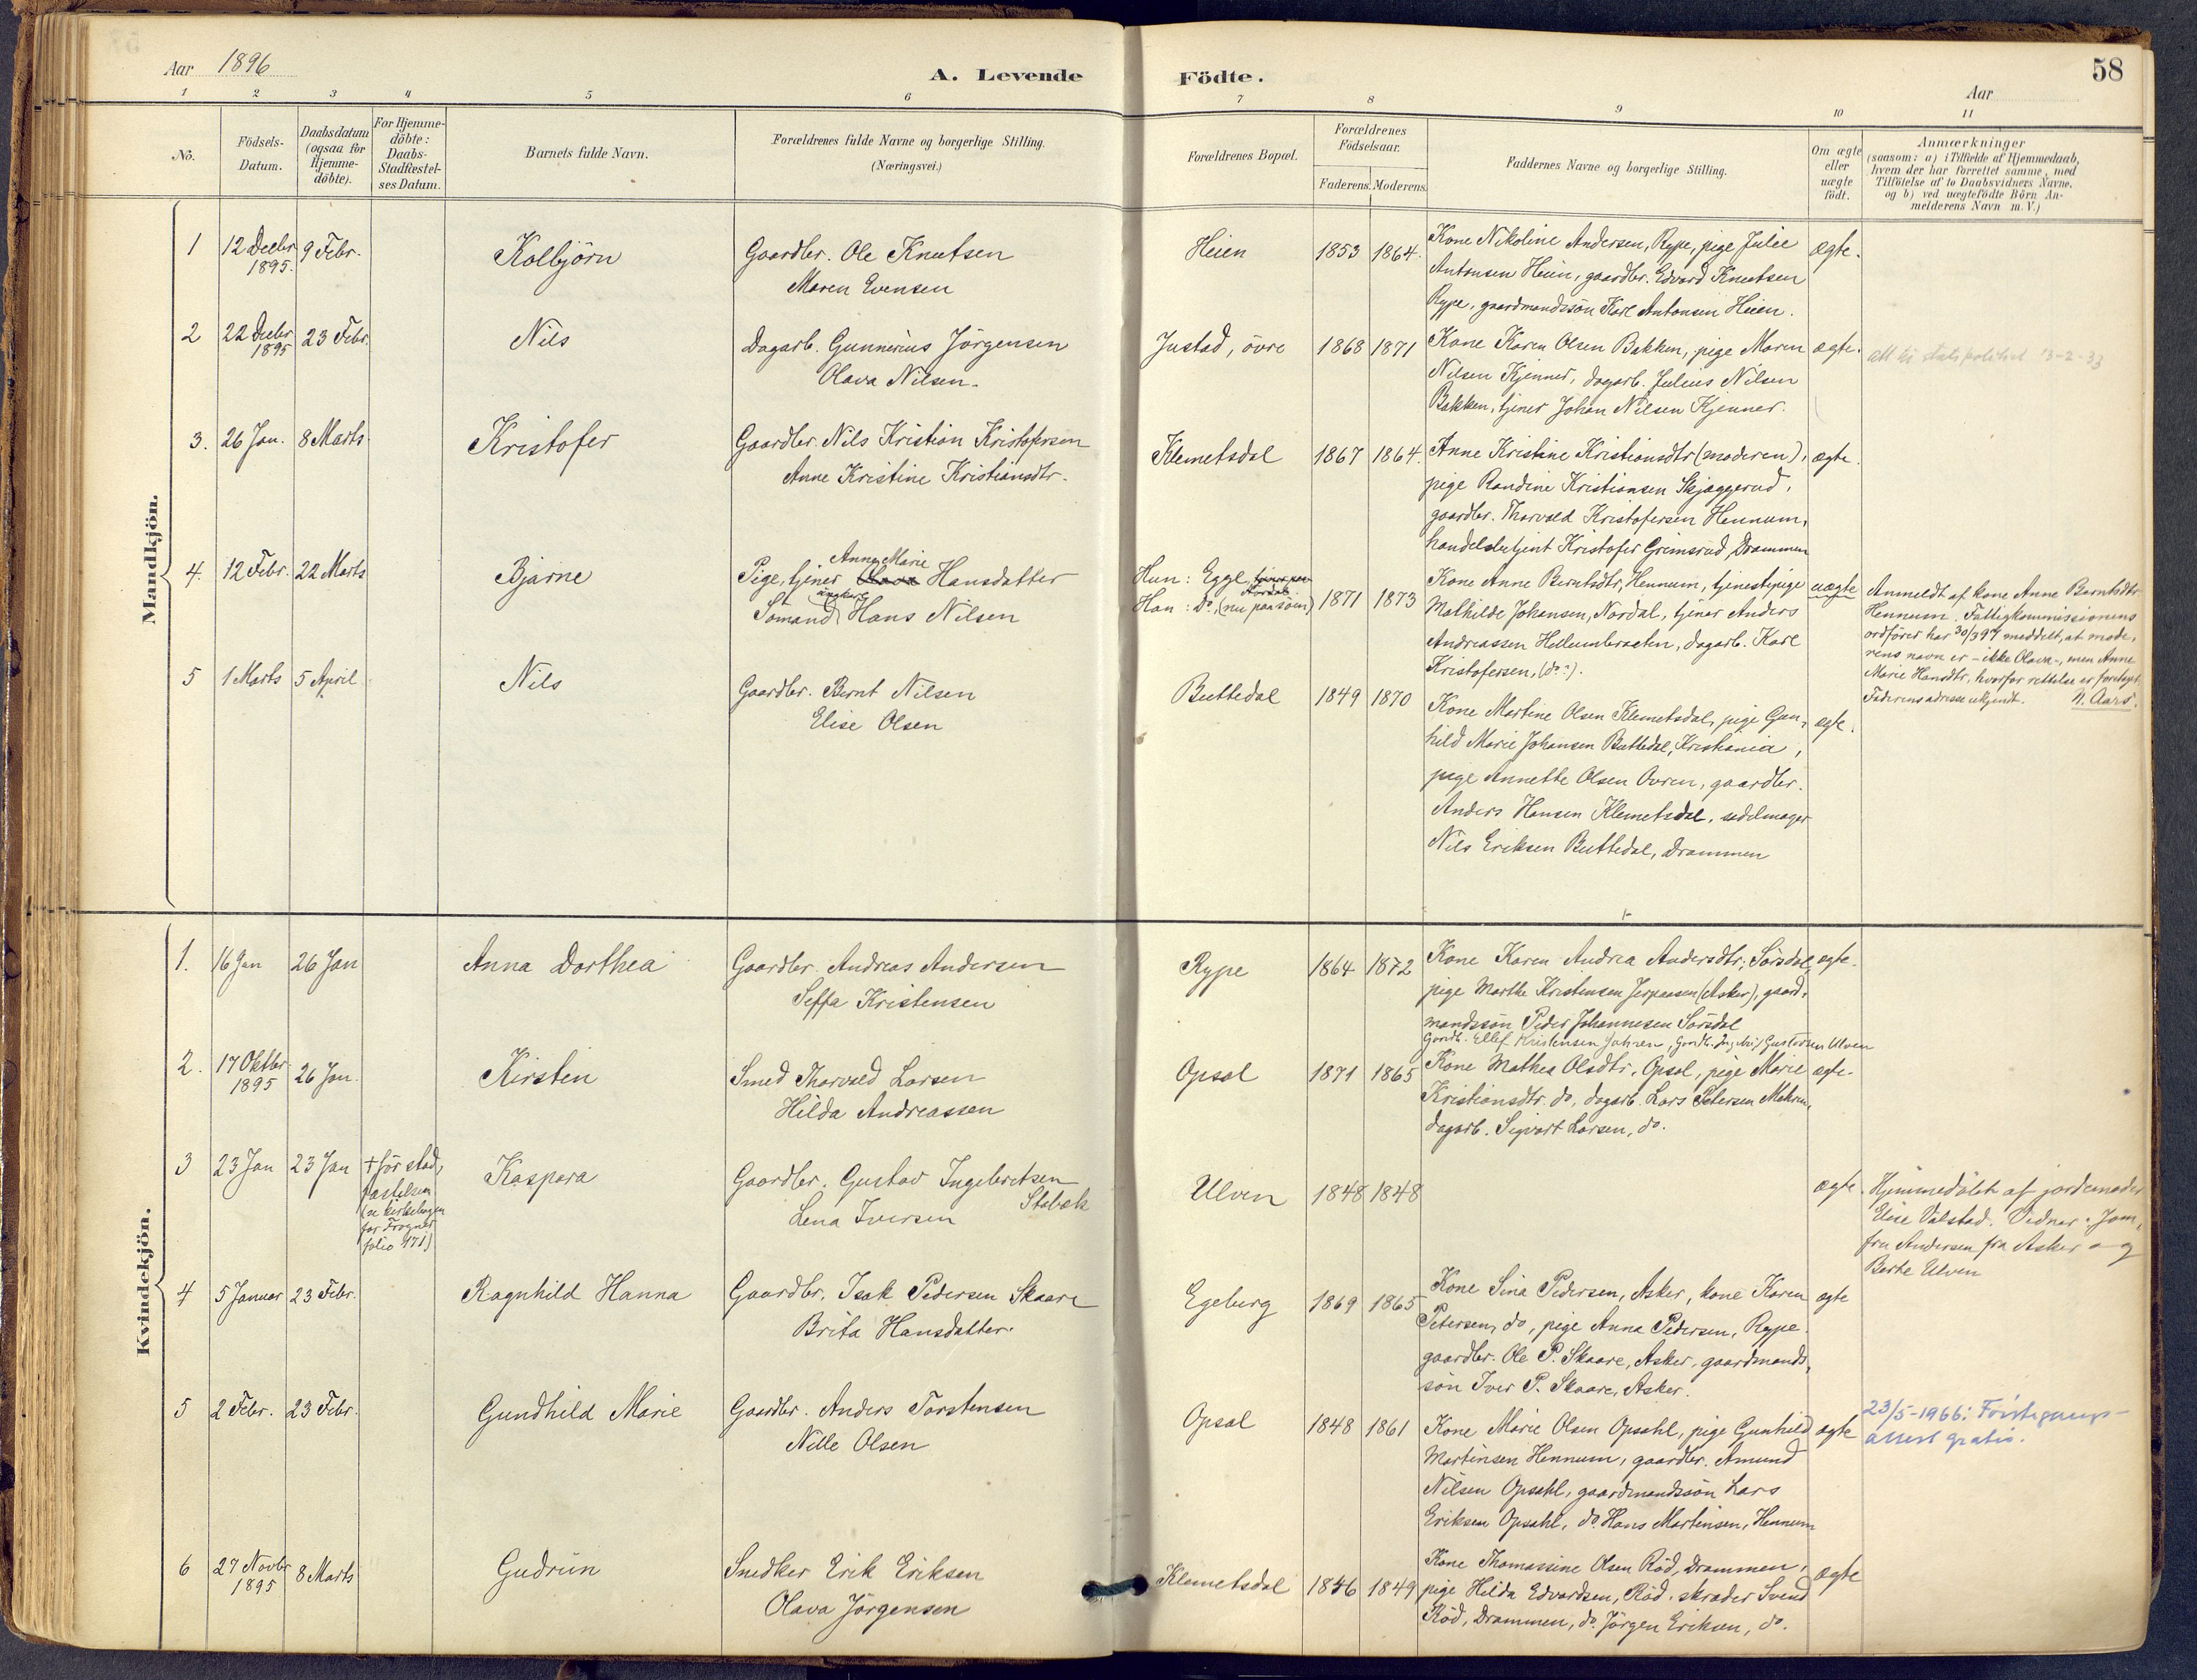 Aar 1896
A. Levende Födte.
58
Aar
1 2 3 4 5 6 7 8 9 10 11
No.
Födsels-
Datum.
Daabsdatum
(ogsaa for
Hjemme-
döbte).
For Hjemme-
döbte:
Daabs-
Stadfæstel-
ses Datum.
Barnets fulde Navn.
Forældrenes fulde Navne og borgerlige Stilling.
(Næringsvei.)
Forældrenes Bopæl.
Forældrenes
Födselsaar.
Faderens. Moderens.
Faddernes Navne og borgerlige Stilling.
Om ægte
eller
uægte
födt.
Anmærkninger
(saasom: a) i Tilfælde af Hjemmedaab,
hvem der har forrettet samme, med
Tilföielse af to Daabsvidners Navne,
og b) ved uægtefödte Börn An-
melderens Navn m.V.)
Mandkjön.
1
12 Decbr
1895.
9 Febr.
Kolbjörn
Gaardbr. Ole Knutsen
Maren Evensen
Heien
1853
1864.
Kone Nikoline Andersen, Rype, pige Julie
Antonsen Heien, gaardbr. Edvard Knutsen
Rype, gaardmandssön Karl Antonsen Heien.
ægte.
2
22 Decbr
1895
23 Febr.
Nils
Dagarb. Gunnerius Jörgensen
Olava Nilsen.
Justad, övre
1868
1871
Kone Karen Olsen Bakken, pige Maren
Nilsen Kjenner, dagarb. Julius Nilsen
Bakken, tjener Johan Nilsen Kjenner.
ægte.
3.
26 Jan.
8 Marts.
Kristofer
Gaardbr. Nils Kristian Kristofersen
Anne Kristine Kristiansdtr.
Klemetsdal
1867
1864.
Anne Kristine Kristiansdtr (moderen),
pige Randine Kristiansen Skjæggerud,
gaardbr. Thorvald Kristofersen Hennum,
handelsbetjent Kristofer Grimsrud, Drammen
ægte.
4.
12 Febr.
22 Marts
Bjarne
Anne Marie
Pige, tjener Olava Hansdatter
ungkarl
Sömand Hans Nilsen
Hun: Egge,
Han: Do, (nu paa söen)
1871
1873
Kone Anne Berntsdtr, Hennum, tjenestepige
Mathilde Johansen, Nordal, tjener Anders
Andreassen Hellumbraaten, dagarb. Karl
Kristofersen, (do?).
uægte
Anmeldt af kone Anne Berntsdtr
Hennum. Fattigkommissionens
ordförer har 30/3 97 meddelt, at mode-
rens navn er - ikke Olava -, men Anne
Marie Hansdtr, hvorfor rettelse er foretaget.
Faderens adresse ukjendt. N. Aars.
5
1 Marts
5 April
Nils
Gaardbr. Bernt Nilsen
Elise Olsen
Buttedal
1849
1870
Kone Martine Olsen Klemetsdal, pige Gun-
hild Marie Johansen Buttedal, Kristiania,
pige Annette Olsen Ovren, gaardbr.
Anders Hansen Klemetsdal, sadelmager
Nils Eriksen Buttedal, Drammen
ægte.
Kvindekjön.
1.
16 Jan
26 Jan
Anna Dorthea
Gaardbr. Andreas Andersen
Seffa Kristensen
Rype
1864
1872
Kone Karen Andrea Andersdtr, Sörsdal,
pige Marthe Kristensen Jerpaasen (Asker), gaard-
mandssön Peder Johannesen Sörsdal
Gaardb. Ellef Kristensen Jahren, Gaardb. Gustavsen Ulven
ægte.
2.
17 Oktbr
1895
26 Jan.
Kirsten
Smed Thorvald Larsen
Hilda Andreassen
Opsal
1871
1865
Kone Mathea Olsdtr, Opsal, pige Marie
Kristiansdtr. do, dagarb. Lars Petersen Mehren,
dagarb. Sigvart Larsen, do.
ægte.
3
23 Jan
23 Jan
+ för stad-
fæstelsen
(se kirkebogen
for Frogner
folio 171)
Kaspara
Gaardbr. Gustav Ingebretsen
Stabæk
Lena Iversen
Ulven
1848
1848
ægte.
Hjemmedöbt af jordemoder
Elise Valstad. Vidner: Jom-
fru Andersen fra Asker og
Berte Ulven
4
5 Januar
23 Febr.
Ragnhild Hanna
Gaardbr. Isak Pedersen Skaare
Brita Hansdatter.
Egeberg
1869
1865
Kone Sina Pedersen, Asker, kone Karen
Petersen, do, pige Anna Pedersen, Rype.
gaardbr. Ole P. Skaare, Asker, gaardmands-
sön Iver P. Skaare, Asker.
ægte
5
2 Febr.
23 Febr.
Gundhild Marie
Gaardbr. Anders Torstensen
Nille Olsen
Opsal
1848
1861
Kone Marie Olsen Opsahl, pige Gunhild
Martinsen Hennum, gaardbr. Amund
Nilsen Opsahl, gaardmandssön Lars
Eriksen Opsahl, do Hans Martinsen, Hennum
ægte
23/5-1966: Förstegangs-
attest gratis.
6
27 Novbr
1895
8 Marts
Gudrun
Snedker Erik Eriksen
Olava Jörgensen
Klemetsdal
1846
1849
Kone Thomassine Olsen Röd, Drammen,
pige Hilda Edvardsen, Röd, skræder Svend
Röd, Drammen, do Jörgen Eriksen, do.
ægte